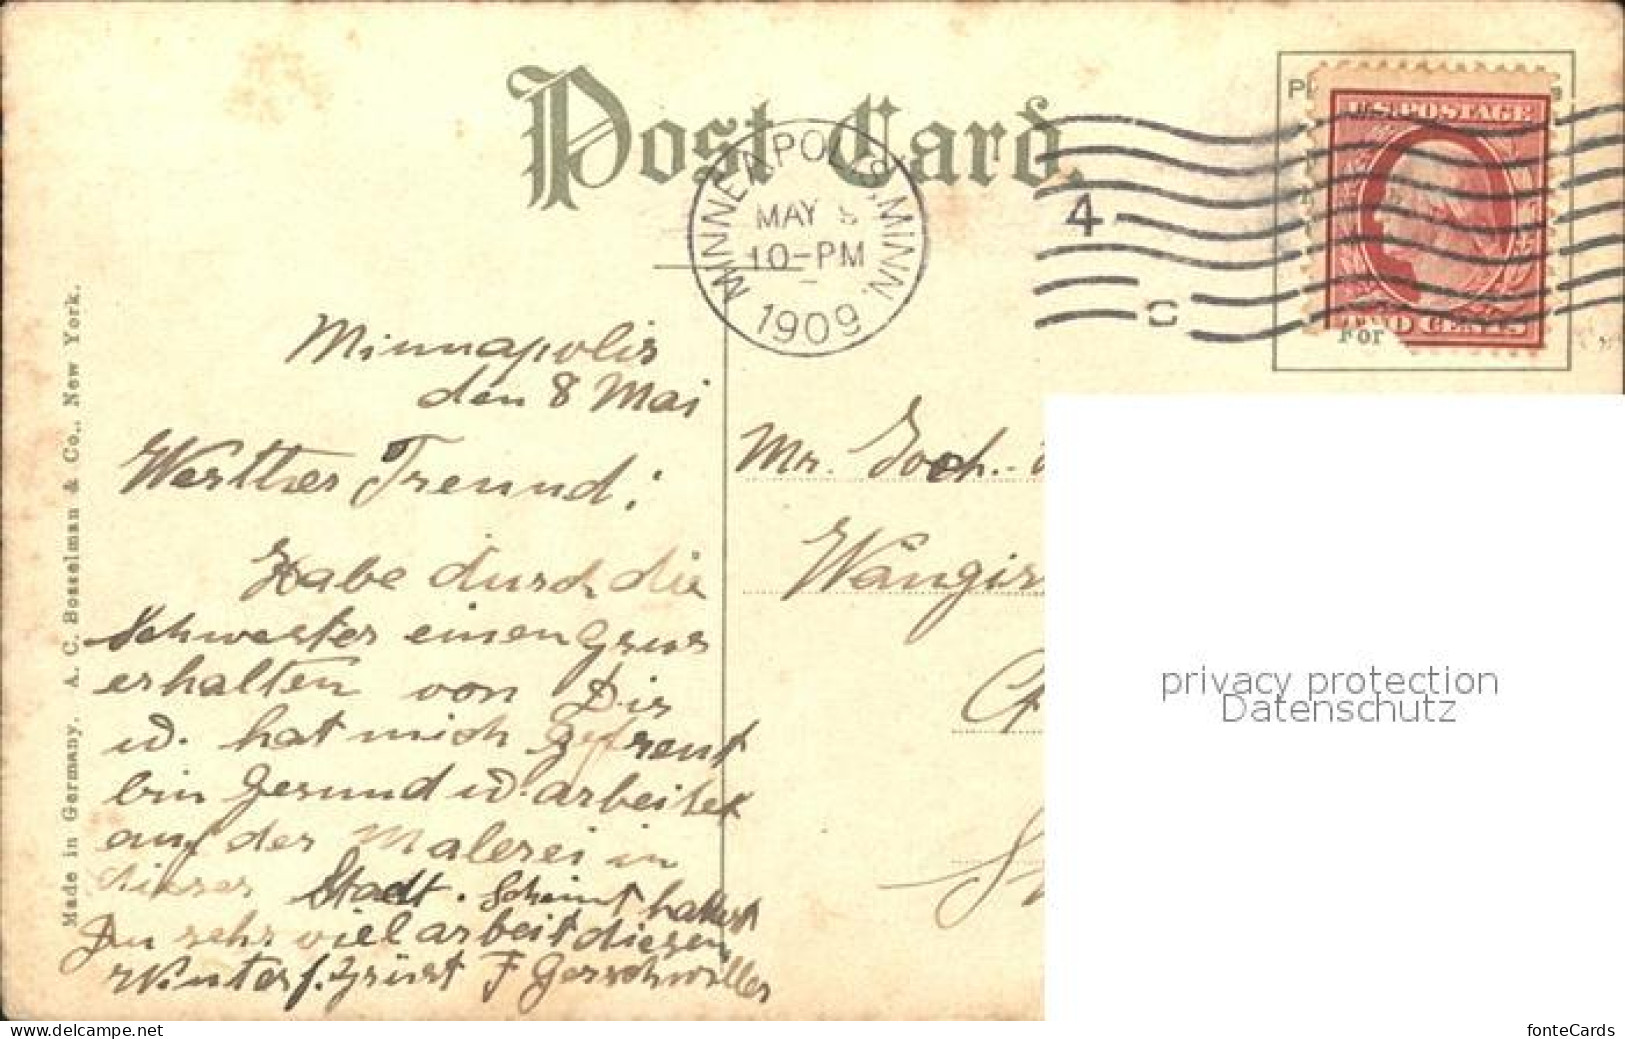 Post Card.
MINNEAPOLIS, MINN.
MAY 8
10-PM
1909
4
C
U.S. POSTAGE
TWO CENTS
For
Minnapolis
den 8 Mai
Werther Freund;
Habe durch die
Schwester einen Grus
erhalten von Dir
u. hat mich gefreut
bin gesund u. arbeitet
auf der Malerei in
dieser Stadt. Scheint hattest
Du sehr viel arbeit diesen
Winter f. grüst F Gerschwiller
Mr. Joch.
Wängis
Ct
St
Made in Germany. A. C. Bosselman & Co., New York.
privacy protection
Datenschutz
delcampe.net
fonteCards